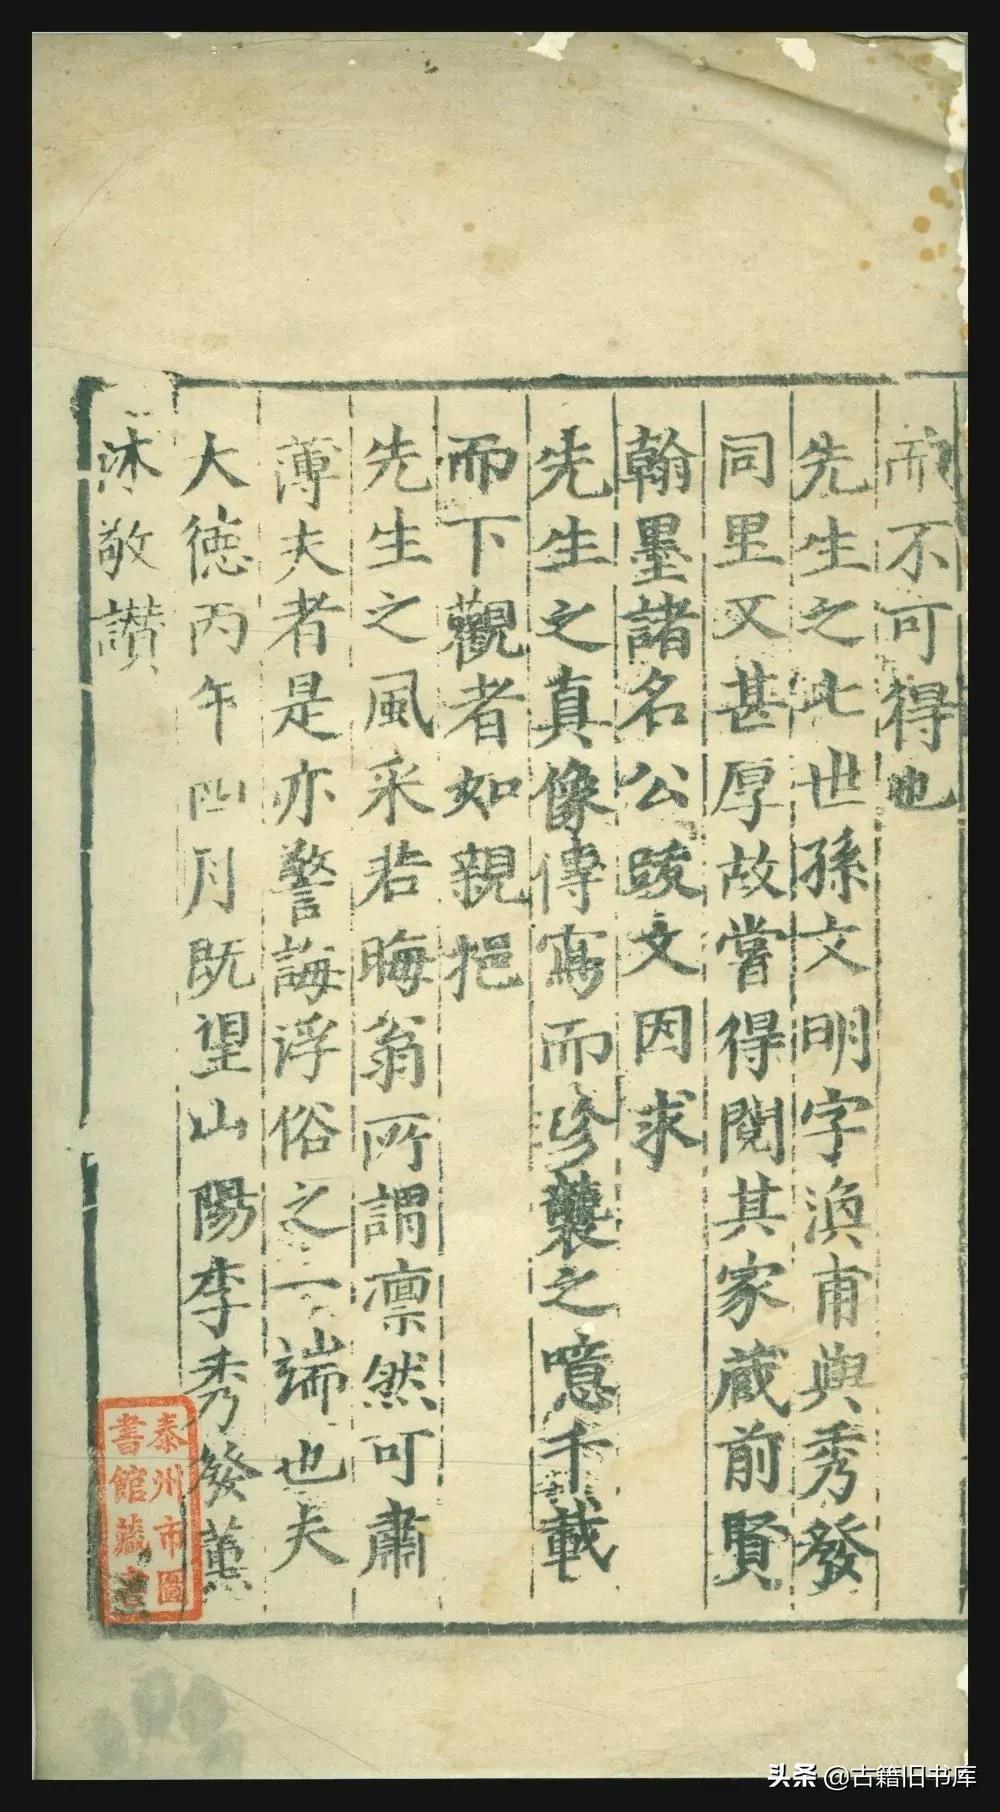 而不可得也
先生之七世孫文明字渙甫與秀發
同里又甚厚故嘗得閱其家藏前賢
翰墨諸名公跋文因求
先生之真像傳寫而珍襲之噫千載
而下觀者如親挹
先生之風采若晦翁所謂凛然可肅
薄夫者是亦警誨浮俗之一端也夫
大德丙午四月既望山陽李秀發薰
沐敬讃
泰州市圖
書館藏書
头条 @古籍旧书库